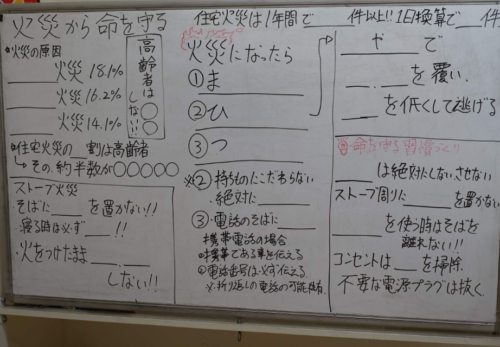 火災から命を守る
火災の原因
___火災 18.1%
___火災 16.2%
___火災 14.1%
高齢者は
しない○○
住宅火災の 割は高齢者
→その、約半数が○○○○○
ストーブ火災
そばに___を置かない!!
寝る時は必ず___!!
火をつけたまま___
しない!!
住宅火災は1年間で___件以上!!1日換算で___件
火災になったら
①ま
②ひ
③つ
※② 持ちものにこだわらない
絶対に
③電話のそばに
携帯電話の場合
携帯である事を伝える
電話番号は必ず伝える
※折り返しの電話の可能性有
___や___で
___を覆い、
___を低くして逃げる
命を守る習慣づくり
___は絶対にしない、させない
ストーブ周りに___を置かない
___を使う時はそばを
離れない!!
コンセントは___を掃除
不要な電源プラグは抜く